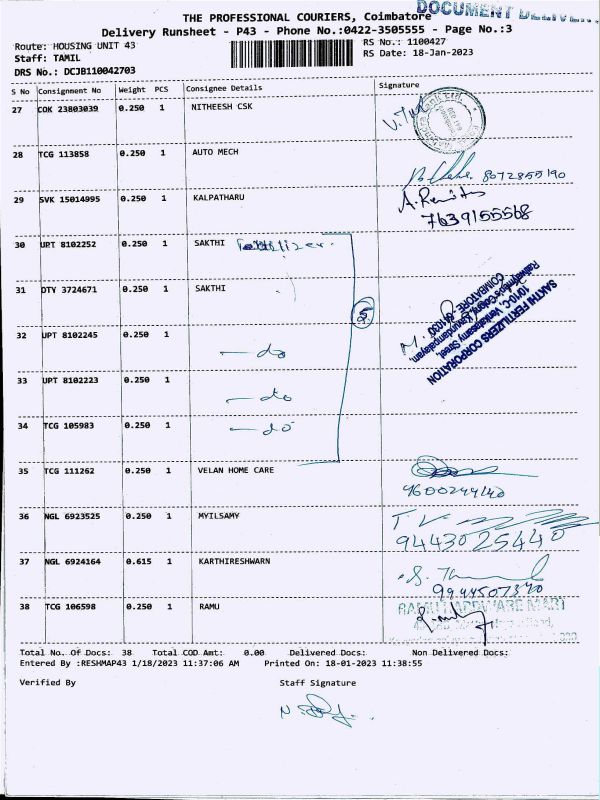 DOCUMENT DELIVER
THE PROFESSIONAL COURIERS, Coimbatore
Delivery Runsheet - P43 - Phone No.:0422-3505555 - Page No.:3
Route: HOUSING UNIT 43
RS No.: 1100427
Staff: TAMIL
RS Date: 18-Jan-2023
DRS No.: DCJB110042703
S No Consignment No Weight PCS Consignee Details Signature
27 COK 23803039 0.250 1 NITHEESH CSK
28 TCG 113858 0.250 1 AUTO MECH 8072855190
29 SVK 15014995 0.250 1 KALPATHARU
7639155568
30 UPT 8102252 0.250 1 SAKTHI Fertilizer.
31 DTY 3724671 0.250 1 SAKTHI
SAKTHI FERTILIZERS CORPORATION
1010-C, Venkatasamy Street,
COIMBATORE
32 UPT 8102245 0.250 1 -do
33 UPT 8102223 0.250 1 -do
34 TCG 105983 0.250 1 -do
35 TCG 111262 0.250 1 VELAN HOME CARE
9600244140
36 NGL 6923525 0.250 1 MYILSAMY
9443025440
37 NGL 6924164 0.615 1 KARTHIRESHWARN
9994507340
38 TCG 106598 0.250 1 RAMU
RAMU HARDWARE MART
Total No. Of Docs: 38 Total COD Amt: 0.00 Delivered Docs: Non Delivered Docs:
Entered By :RESHMAP43 1/18/2023 11:37:06 AM Printed On: 18-01-2023 11:38:55
Verified By Staff Signature